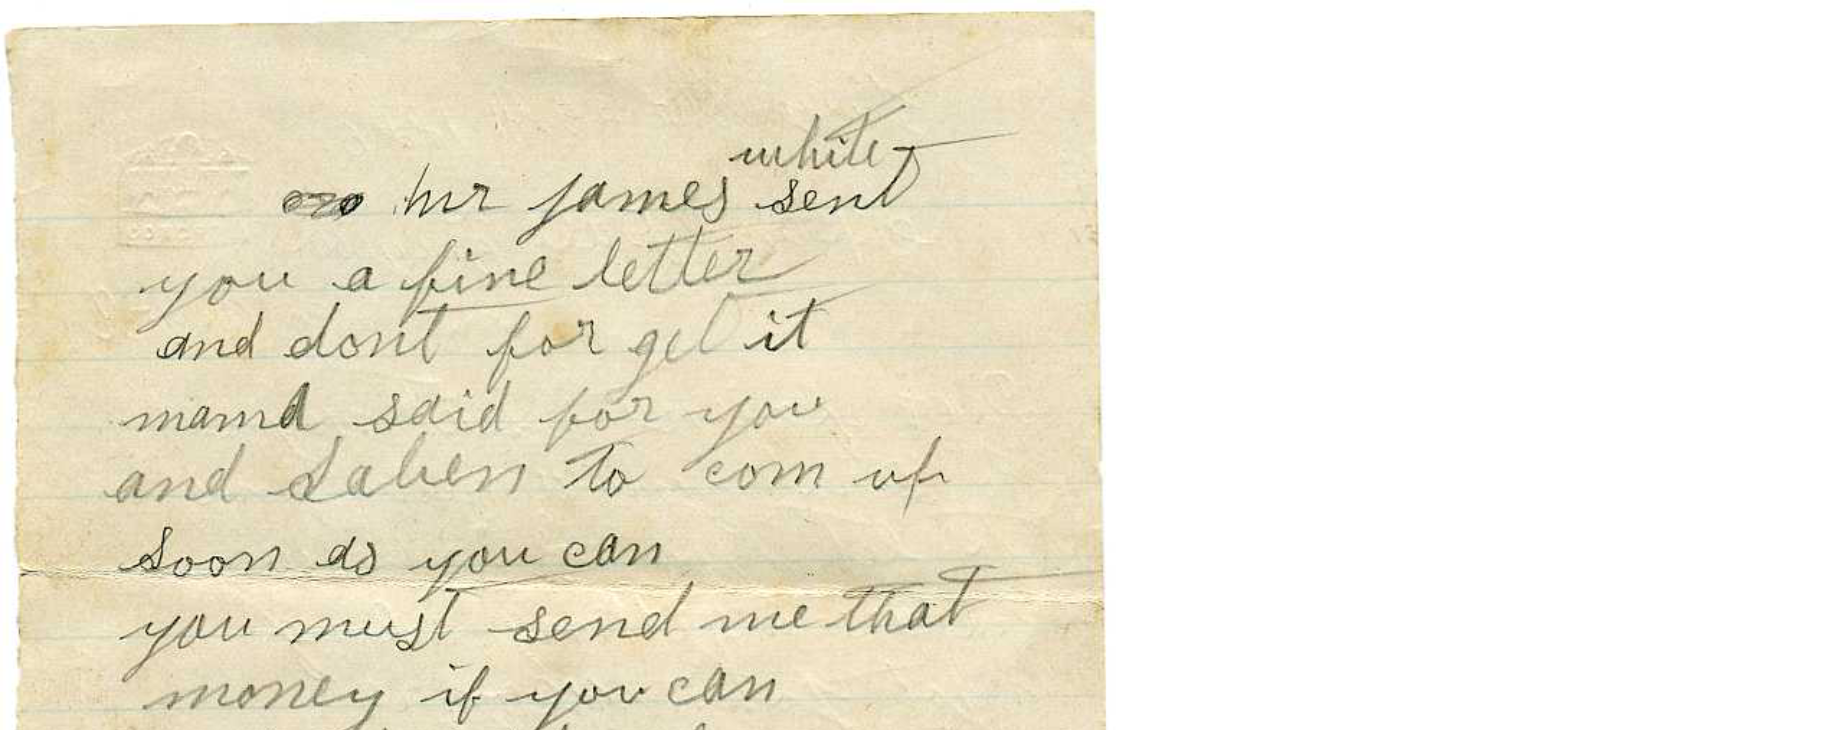 white
mr james sent
you a fine letter
and dont for get it
mama said for you
and to com up
soon as you can
you must send me that
money if you can